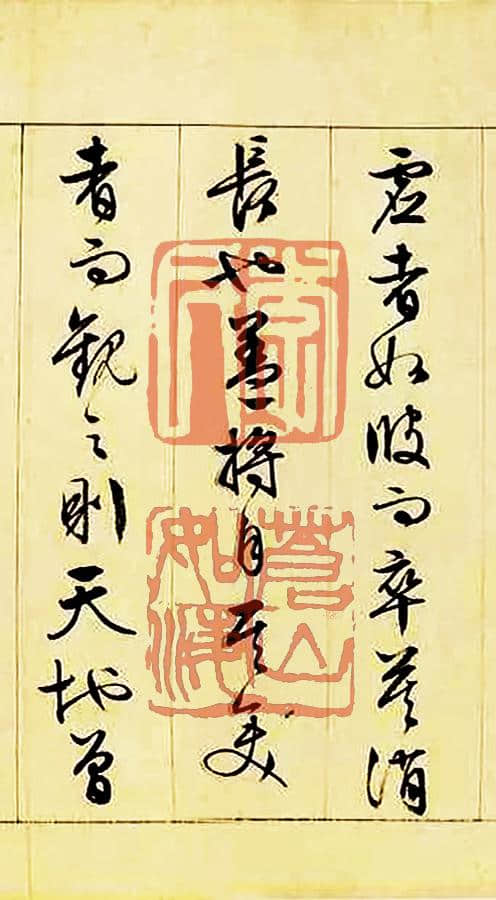 虛者如彼而卒莫消
長也蓋將自其變
者而觀之則天地曾
蒼山如海